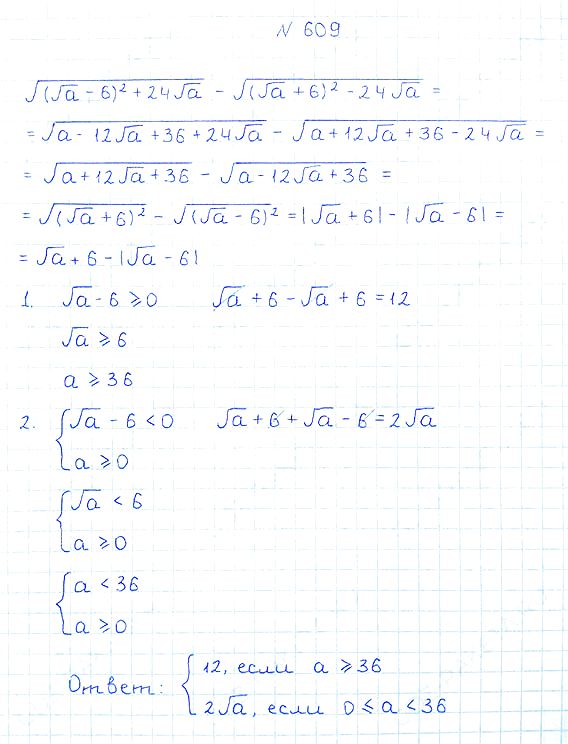 N 609
√((√a - 6)² + 24√a) - √((√a + 6)² - 24√a) =
= √(a - 12√a + 36 + 24√a) - √(a + 12√a + 36 - 24√a) =
= √(a + 12√a + 36) - √(a - 12√a + 36) =
= √((√a + 6)²) - √((√a - 6)²) = |√a + 6| - |√a - 6| =
= √a + 6 - |√a - 6|
1. √a - 6 ≥ 0 √a + 6 - √a + 6 = 12
√a ≥ 6
a ≥ 36
2. { √a - 6 < 0 √a + 6 + √a - 6 = 2√a
a ≥ 0
{ √a < 6
a ≥ 0
{ a < 36
a ≥ 0
Ответ: { 12, если a ≥ 36
2√a, если 0 ≤ a < 36